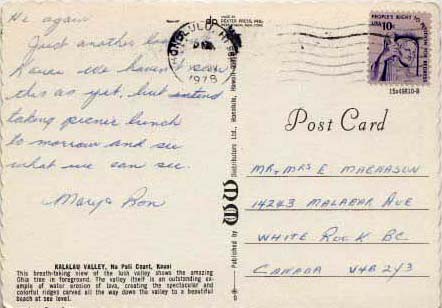 Hi again
Just another
Kauai we haven't seen
this as yet, but intend
taking picnic lunch
to morrow and see
what we can see.
Marg & Ron
KALALAU VALLEY, Na Pali Coast, Kauai
This breath-taking view of the lush valley shows the amazing
Ohia tree in foreground. The valley itself is an outstanding ex-
ample of water erosion of lava, creating the spectacular and
colorful ridges carved all the way down the valley to a beautiful
beach at sea level.
MADE BY
DEXTER PRESS, INC.
Published by WW Distributors Ltd., Honolulu, Hawaii
HONOLULU, HI
PM
1978
PEOPLE'S RIGHT TO PETITION FOR REDRESS
USA 10c
Post Card
MR, MRS E MAGAASON
14243 MALABAR AVE
WHITE ROCK BC.
CANADA V4B2Y3